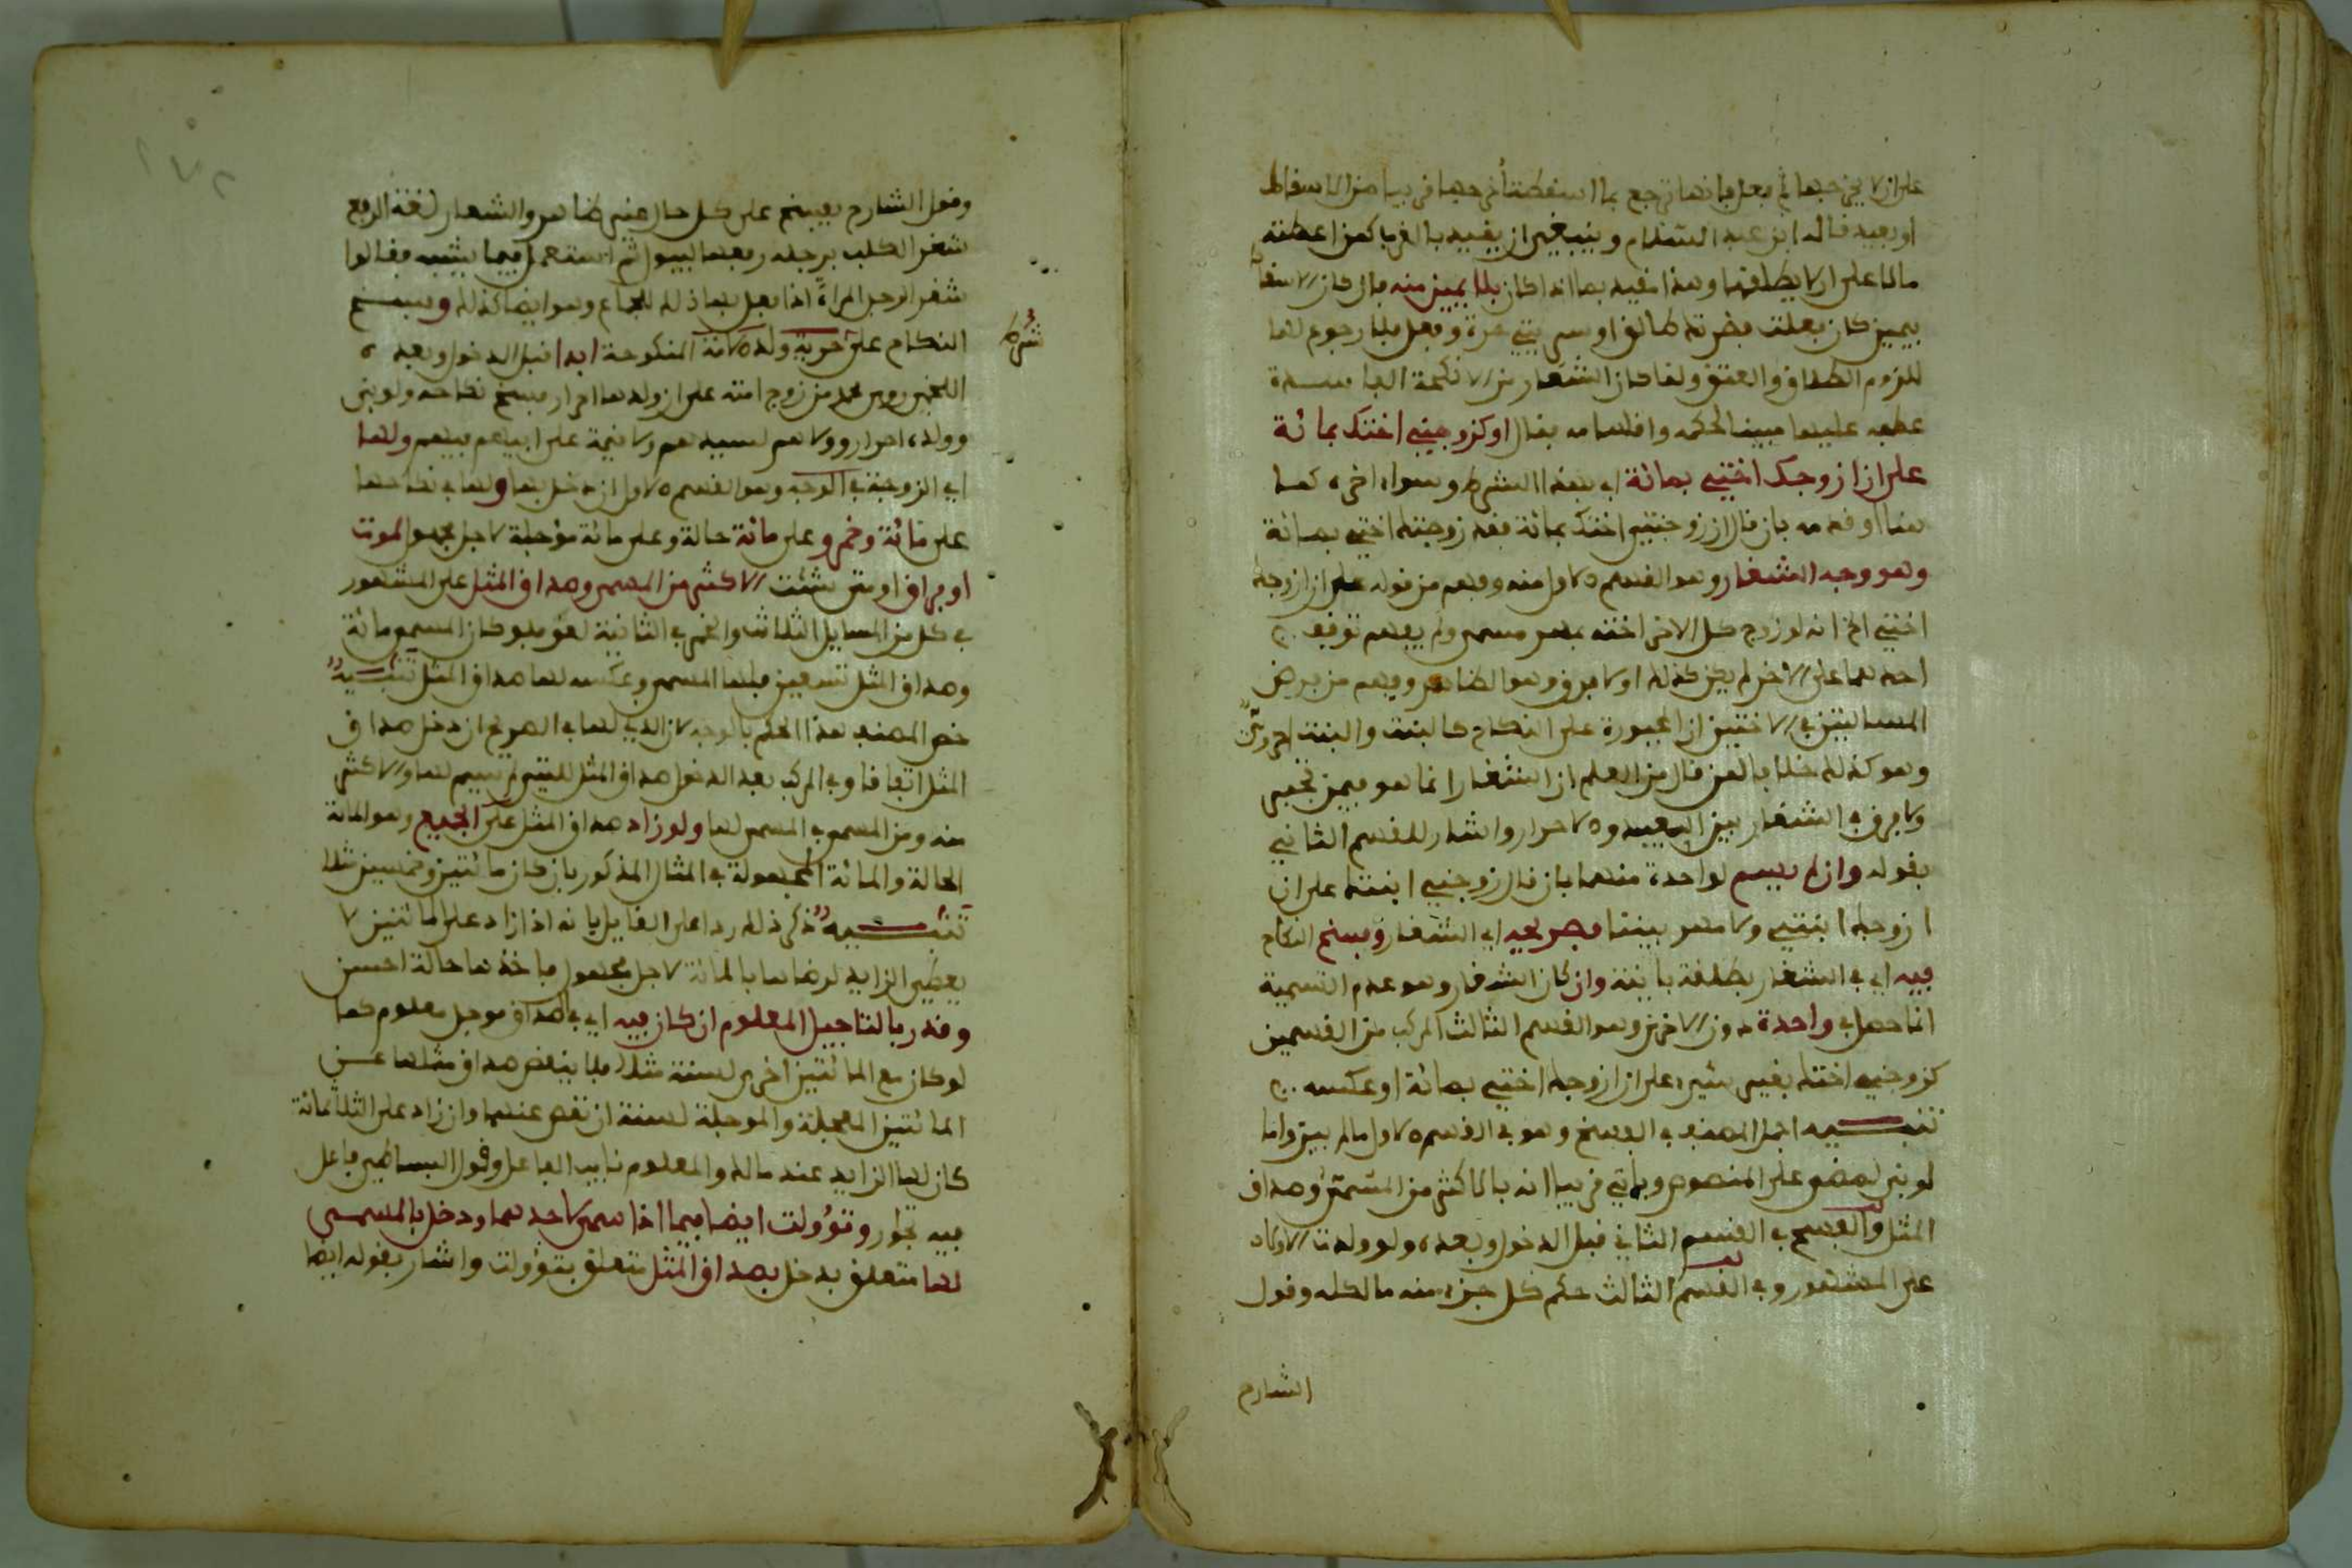 على ان لا يخرجها ثم فعل فانها ترجع بما اسقطته أخرجها قريبا من الاسقاط
او بعيد قاله ابن عبد السلام وينبغي ان يقيد بالقرب كمن اعطته
مالا على ان لا يطلقها وهذا مقيد بما اذا كان بلا يمين منه فان كان الاسقاط
بيمين كان فعلت فضرتك طالق او سريتي حرة وفعل فلا رجوع لها
للزوم الطلاق والعتق ولما كان الشغار من الانكحة الفاسدة
عطفه عليها مبينا لحكمه واقسامه فقال او كزوجني اختك بمائة
على ان ازوجك اختي بمائة اي بهذا الشرط وسواء اخره كما
هنا او قدمه بان قال ان زوجتني اختك بمائة فقد زوجتك اختي بمائة
وهو وجه الشغار وهو القسم الاول منه وفهم من قوله على ان ازوجك
اختي الخ انه لو زوج كل الاخر اخته بمهر مسمى ولم يفهم توقف
احدهما على الاخر لم يكن كذلك اولا فرق وهو الظاهر وفهم من فرض
المسالتين في الاختين ان المجبورة على النكاح كالبنت والبنت احروي
وهو كذلك خلافا لمن قال من العلم ان الشغار انما هو فيمن تجبر
ولا فرق في الشغار بين العبيد والاحرار واشار للقسم الثاني
بقوله وان لم يسم لواحدة منهما بان قال زوجني ابنتك على ان
ازوجك ابنتي ولا مهر بيننا فصريحه اي الشغار وفسخ النكاح
فيه اي في الشغار بطلقة باينة وان كان الشغار وهو عدم التسمية
انما حصل في واحدة دون الاخرى وهو القسم الثالث المركب من القسمين
كزوجني اختك بغير شيء على ان ازوجك اختي بمائة او عكسه
تنبيه اجمل المصنف في الفسخ وهو في القسم الاول ما لم يبن واما
لو بنى لمضى على المنصوص وياتي قريبا انه بالاكثر من المسمى وصداق
المثل والفسخ في القسم الثاني قبل الدخول وبعده ولو ولدت الاولاد
على المشهور وفي القسم الثالث حكم كل جزء منه ما لكله وقول
الشارح
وقول الشارح يفسخ على كل حال غير ظاهر والشغار لغة الرفع
شغر الكلب برجله رفعها ليبول ثم استعمل فيما يشبه فقالوا
شغر الرجل المراة اذا فعل بها ذلك للجماع وهو ايضا كذلك وفسخ
النكاح على حرية ولد الامة المنكوحة ابدا قبل الدخول وبعده
شرط
اللخمي روى محمد من زوج امته على ان ولدها احرار فسخ نكاحه ولو بنى
وولده احرار وولاهم لسيدهم ولا قيمة على ابيهم فيهم ولها
اي الزوجة في الوجه وهو القسم الاول ان دخل بها ولها في نكاحها
على مائة وخمر وعلى مائة حالة وعلى مائة مؤجلة لاجل مجهول لموت
او فراق او متى شئت الاكثر من المسمى وصداق المثل على المشهور
في كل من المسايل الثلاث والخمر في الثانية لغو فلو كان المسمى مائة
وصداق المثل تسعين فلها المسمى وعكسه لها صداق المثل تنبيه
خص المصنف هذا الحكم بالوجه لان الذي لها في الصريح ان دخل صداق
المثل اتفاقا وفي المركب بعد الدخول صداق المثل للتي لم يسم لها والاكثر
منه ومن المسمى في المسمى لها ولو زاد صداق المثل على الجميع وهو المائة
الحالة والمائة المجهولة في المثال المذكور بان كان مائتين وخمسين مثلا
تنبيه ذكر ذلك ردا على القايل بانه اذا زاد على المائتين لا
يعطى الزايد لرضاها بالمائة لاجل مجهول فاخذها حالة احسن
وقدر بالتاجيل المعلوم ان كان فيه اي في الصداق مؤجل معلوم كما
لو كان مع المائتين اخرى لسنة مثلا فلا ينقص صداق مثلها عن
المائتين المعجلة والموجلة لسنة ان نقص عنهما وان زاد على الثلاثمائة
كان لها الزايد عند مالك والمعلوم نايب الفاعل وقول البساطي فاعل
فيه تجوز وتؤولت ايضا فيما اذا سمى لاحدهما ودخل بالمسمى
لها متعلق بدخل بصداق المثل متعلق بتؤولت واشار بقوله ايضا